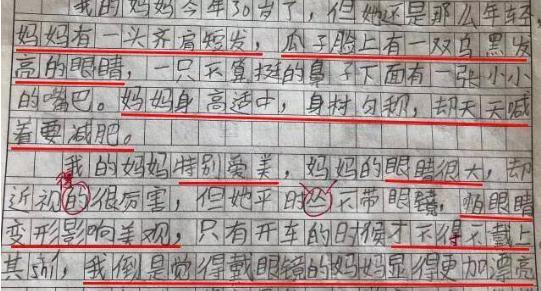 我的妈妈今年30岁了，但她还是那么年轻，
妈妈有一头齐肩短发，瓜子脸上有一双乌黑发
亮的眼睛，一只不算挺的鼻子下面有一张小小
的嘴巴。妈妈身高适中，身材匀称，却天天喊
着要减肥。
我的妈妈特别爱美，妈妈的眼睛很大，却
得
近视的很厉害，但她平时从不带眼镜，怕眼睛
变形影响美观，只有开车的时候才不得不戴上
其，我倒是觉得戴眼镜的妈妈显得更加漂亮